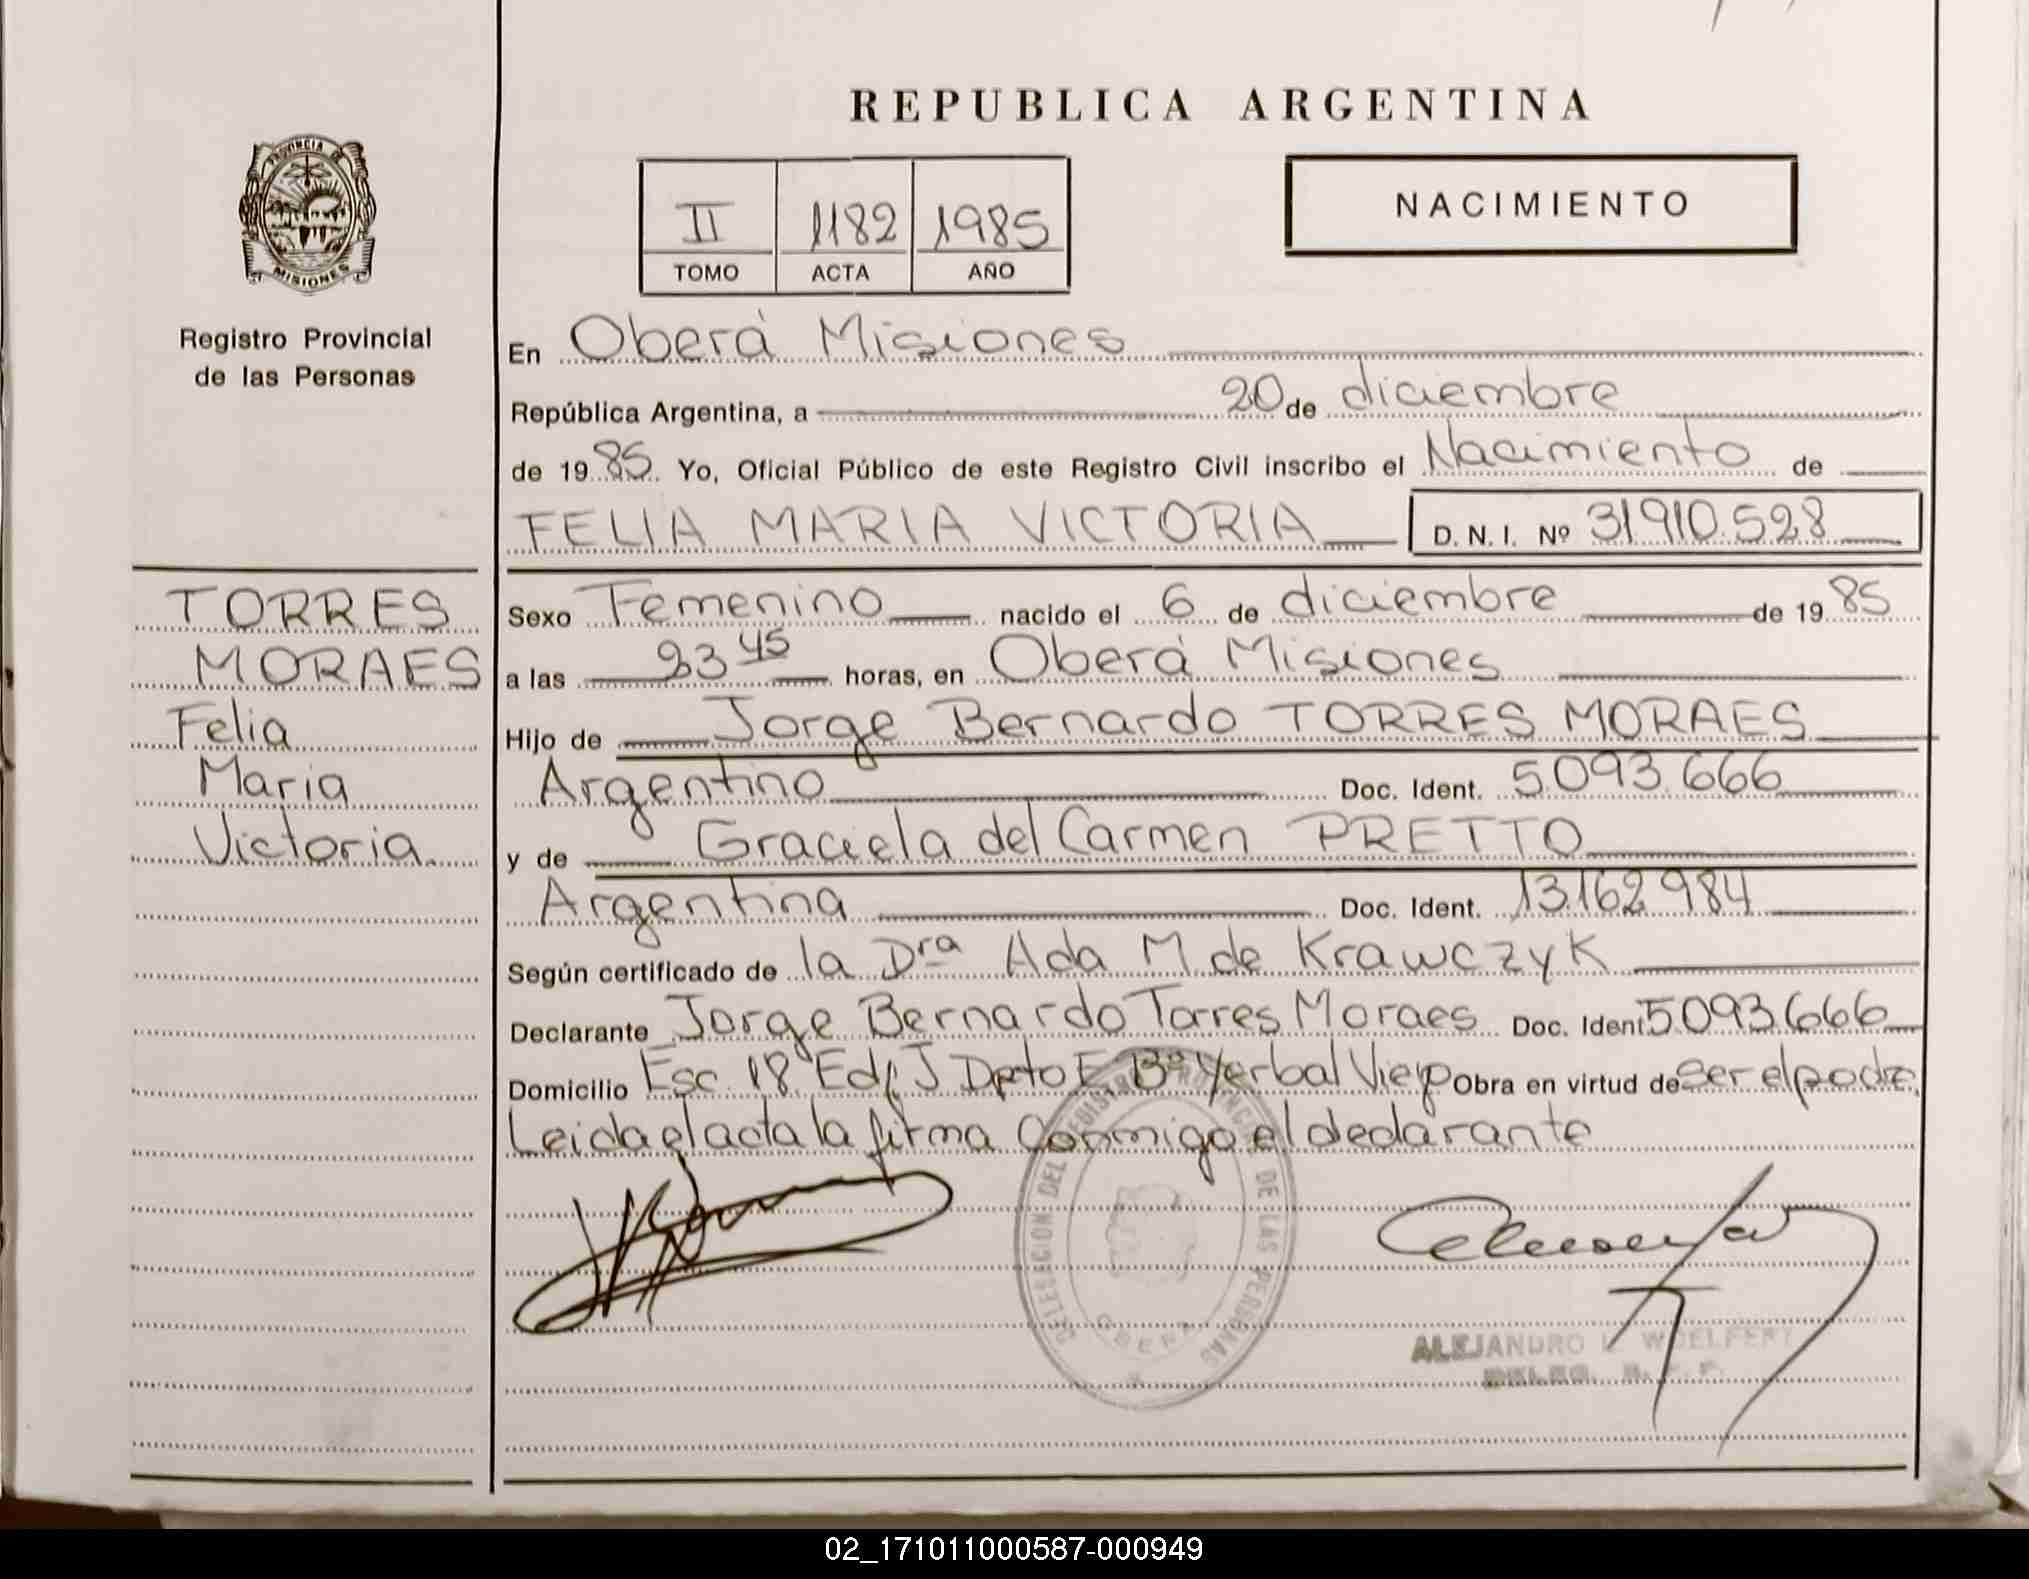 REPUBLICA ARGENTINA
PROVINCIA DE
MISIONES
II 1182 1985
TOMO ACTA AÑO
NACIMIENTO
Registro Provincial
de las Personas
En Oberá Misiones
República Argentina, a 20 de diciembre
de 1985. Yo, Oficial Público de este Registro Civil inscribo el Nacimiento de
FELIA MARIA VICTORIA D. N. I. Nº 31910.528
TORRES
MORAES
Felia
Maria
Victoria.
Sexo Femenino nacido el 6 de diciembre de 1985
a las 23 45 horas, en Oberá Misiones
Hijo de Jorge Bernardo TORRES MORAES
Argentino Doc. Ident. 5.093.666
y de Graciela del Carmen PRETTO
Argentina Doc. Ident. 13.162.984
Según certificado de la Dra Ada M. de Krawczyk
Declarante Jorge Bernardo Torres Moraes Doc. Ident. 5.093.666
Domicilio Esc. 18 Edf J Dpto E Bº Yerbal Viejo Obra en virtud de ser el padre
Leida el acta la firma conmigo el declarante
DELEGACION DEL REGISTRO PROVINCIAL DE LAS PERSONAS
OBERA
ALEJANDRO L. WOELFERT
DELEG. R. P. P.
02_171011000587-000949